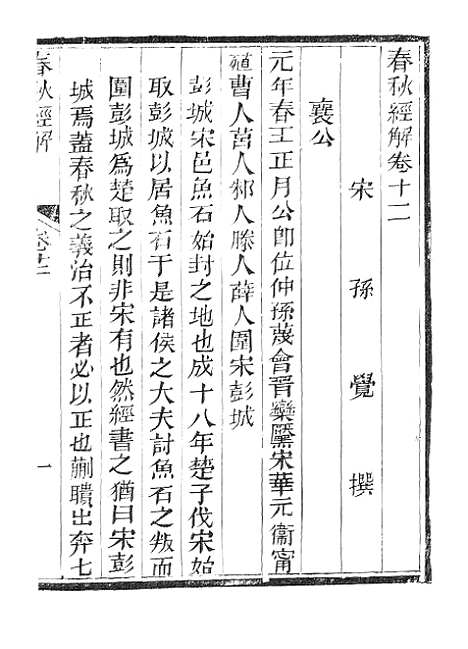 春秋經解卷十二
宋孫覺撰
襄公
元年春王正月公卽位仲孫蔑會晉欒黶宋華元衞甯
殖曹人莒人邾人滕人薛人圍宋彭城
彭城宋邑魚石始封之地也成十八年楚子伐宋始
取彭城以居魚石于是諸侯之大夫討魚石之叛而
圍彭城爲楚取之則非宋有也然經書之猶曰宋彭
城焉蓋春秋之義治不正者必以正也蒯聵出奔七
春秋經解
卷十二
一